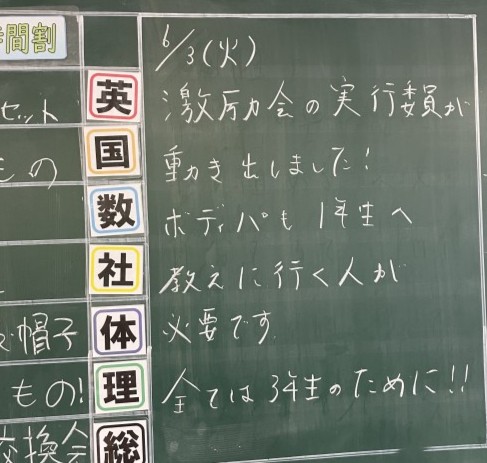 間割
6/3(火)
セット
英
激励会の実行委員が
もの
国
動き出しました!
数
ボディパも 1年生へ
社
教えに行く人が
帽子
体
必要です
もの!
理
全ては3年生のために!!
交換会
総